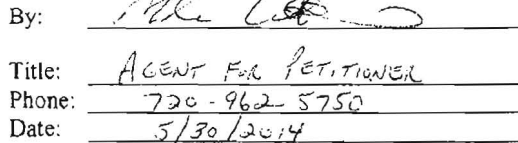 By:
Title: AGENT FOR PETITIONER
Phone: 720-962-5750
Date: 5/30/2014